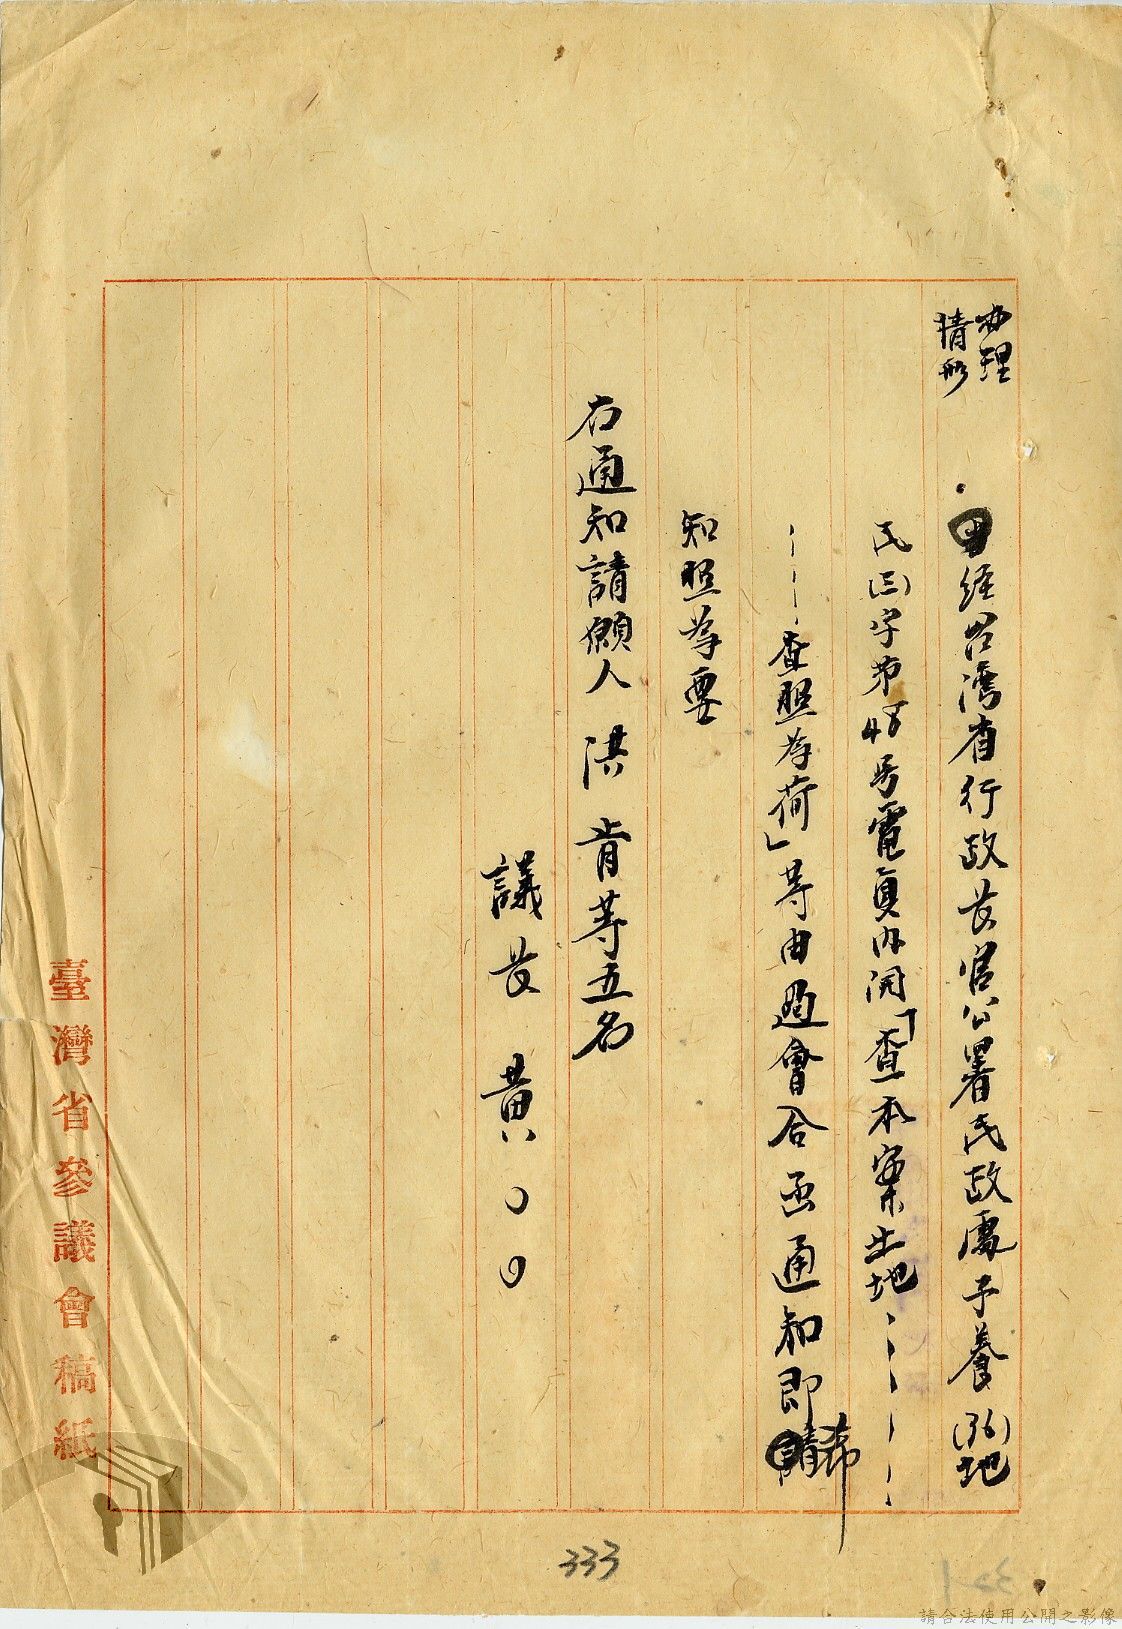 办理
情形
经台湾省行政長官公署民政處子養(36)地
民(三)字第48号電頁内開「查本案土地、、、、、
、、、查照為荷」等由過會合函通知即希
知照為要
右通知請願人 洪 肯等五名
議長 黃○○
臺灣省參議會稿紙
333
請合法使用公開之影像